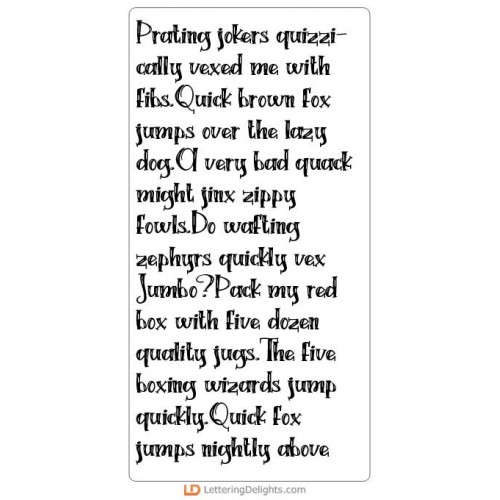 Prating jokers quizzi-
cally vexed me with
fibs.Quick brown fox
jumps over the lazy
dog.A very bad quack
might jinx zippy
fowls.Do wafting
zephyrs quickly vex
Jumbo?Pack my red
box with five dozen
quality jugs.The five
boxing wizards jump
quickly.Quick fox
jumps nightly above
LD LetteringDelights.com